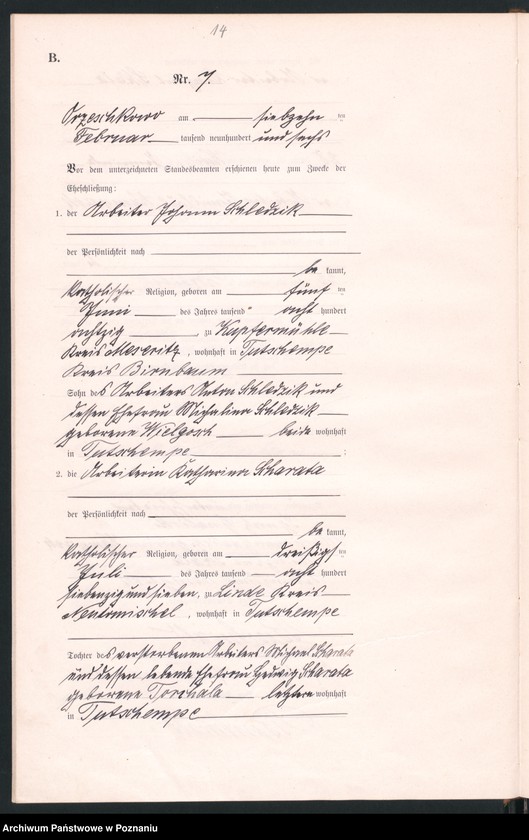 14
B.
Nr. 7.
Orzeschkowo am siebzehn ten
Februar tausend neunhundert und sechs
Vor dem unterzeichneten Standesbeamten erschienen heute zum Zwecke der
Eheschließung:
1. der Arbeiter Johann Schledzik
der Persönlichkeit nach
be kannt,
katholischer Religion, geboren am fünf ten
Juni des Jahres tausend acht hundert
achtzig zu Kupfermühle
Kreis Meseritz, wohnhaft in Tutschempe
Kreis Birnbaum
Sohn des Arbeiters Anton Schledzik und
dessen Ehefrau Michalina Schledzik
geborene beide wohnhaft
in Tutschempe ;
2. die Arbeiterin Katharina Scharata
der Persönlichkeit nach
be kannt,
katholischer Religion, geboren am dreißigs ten
Juli des Jahres tausend acht hundert
siebenzig und sieben, zu Linde Kreis
Neutomischel, wohnhaft in Tutschempe
Tochter des verstorbenen Arbeiters Michael Scharata
und dessen lebende Ehefrau Hedwig Scharata
geborene Torchala letztere wohnhaft
in Tutschempe
Archiwum Państwowe w Poznaniu